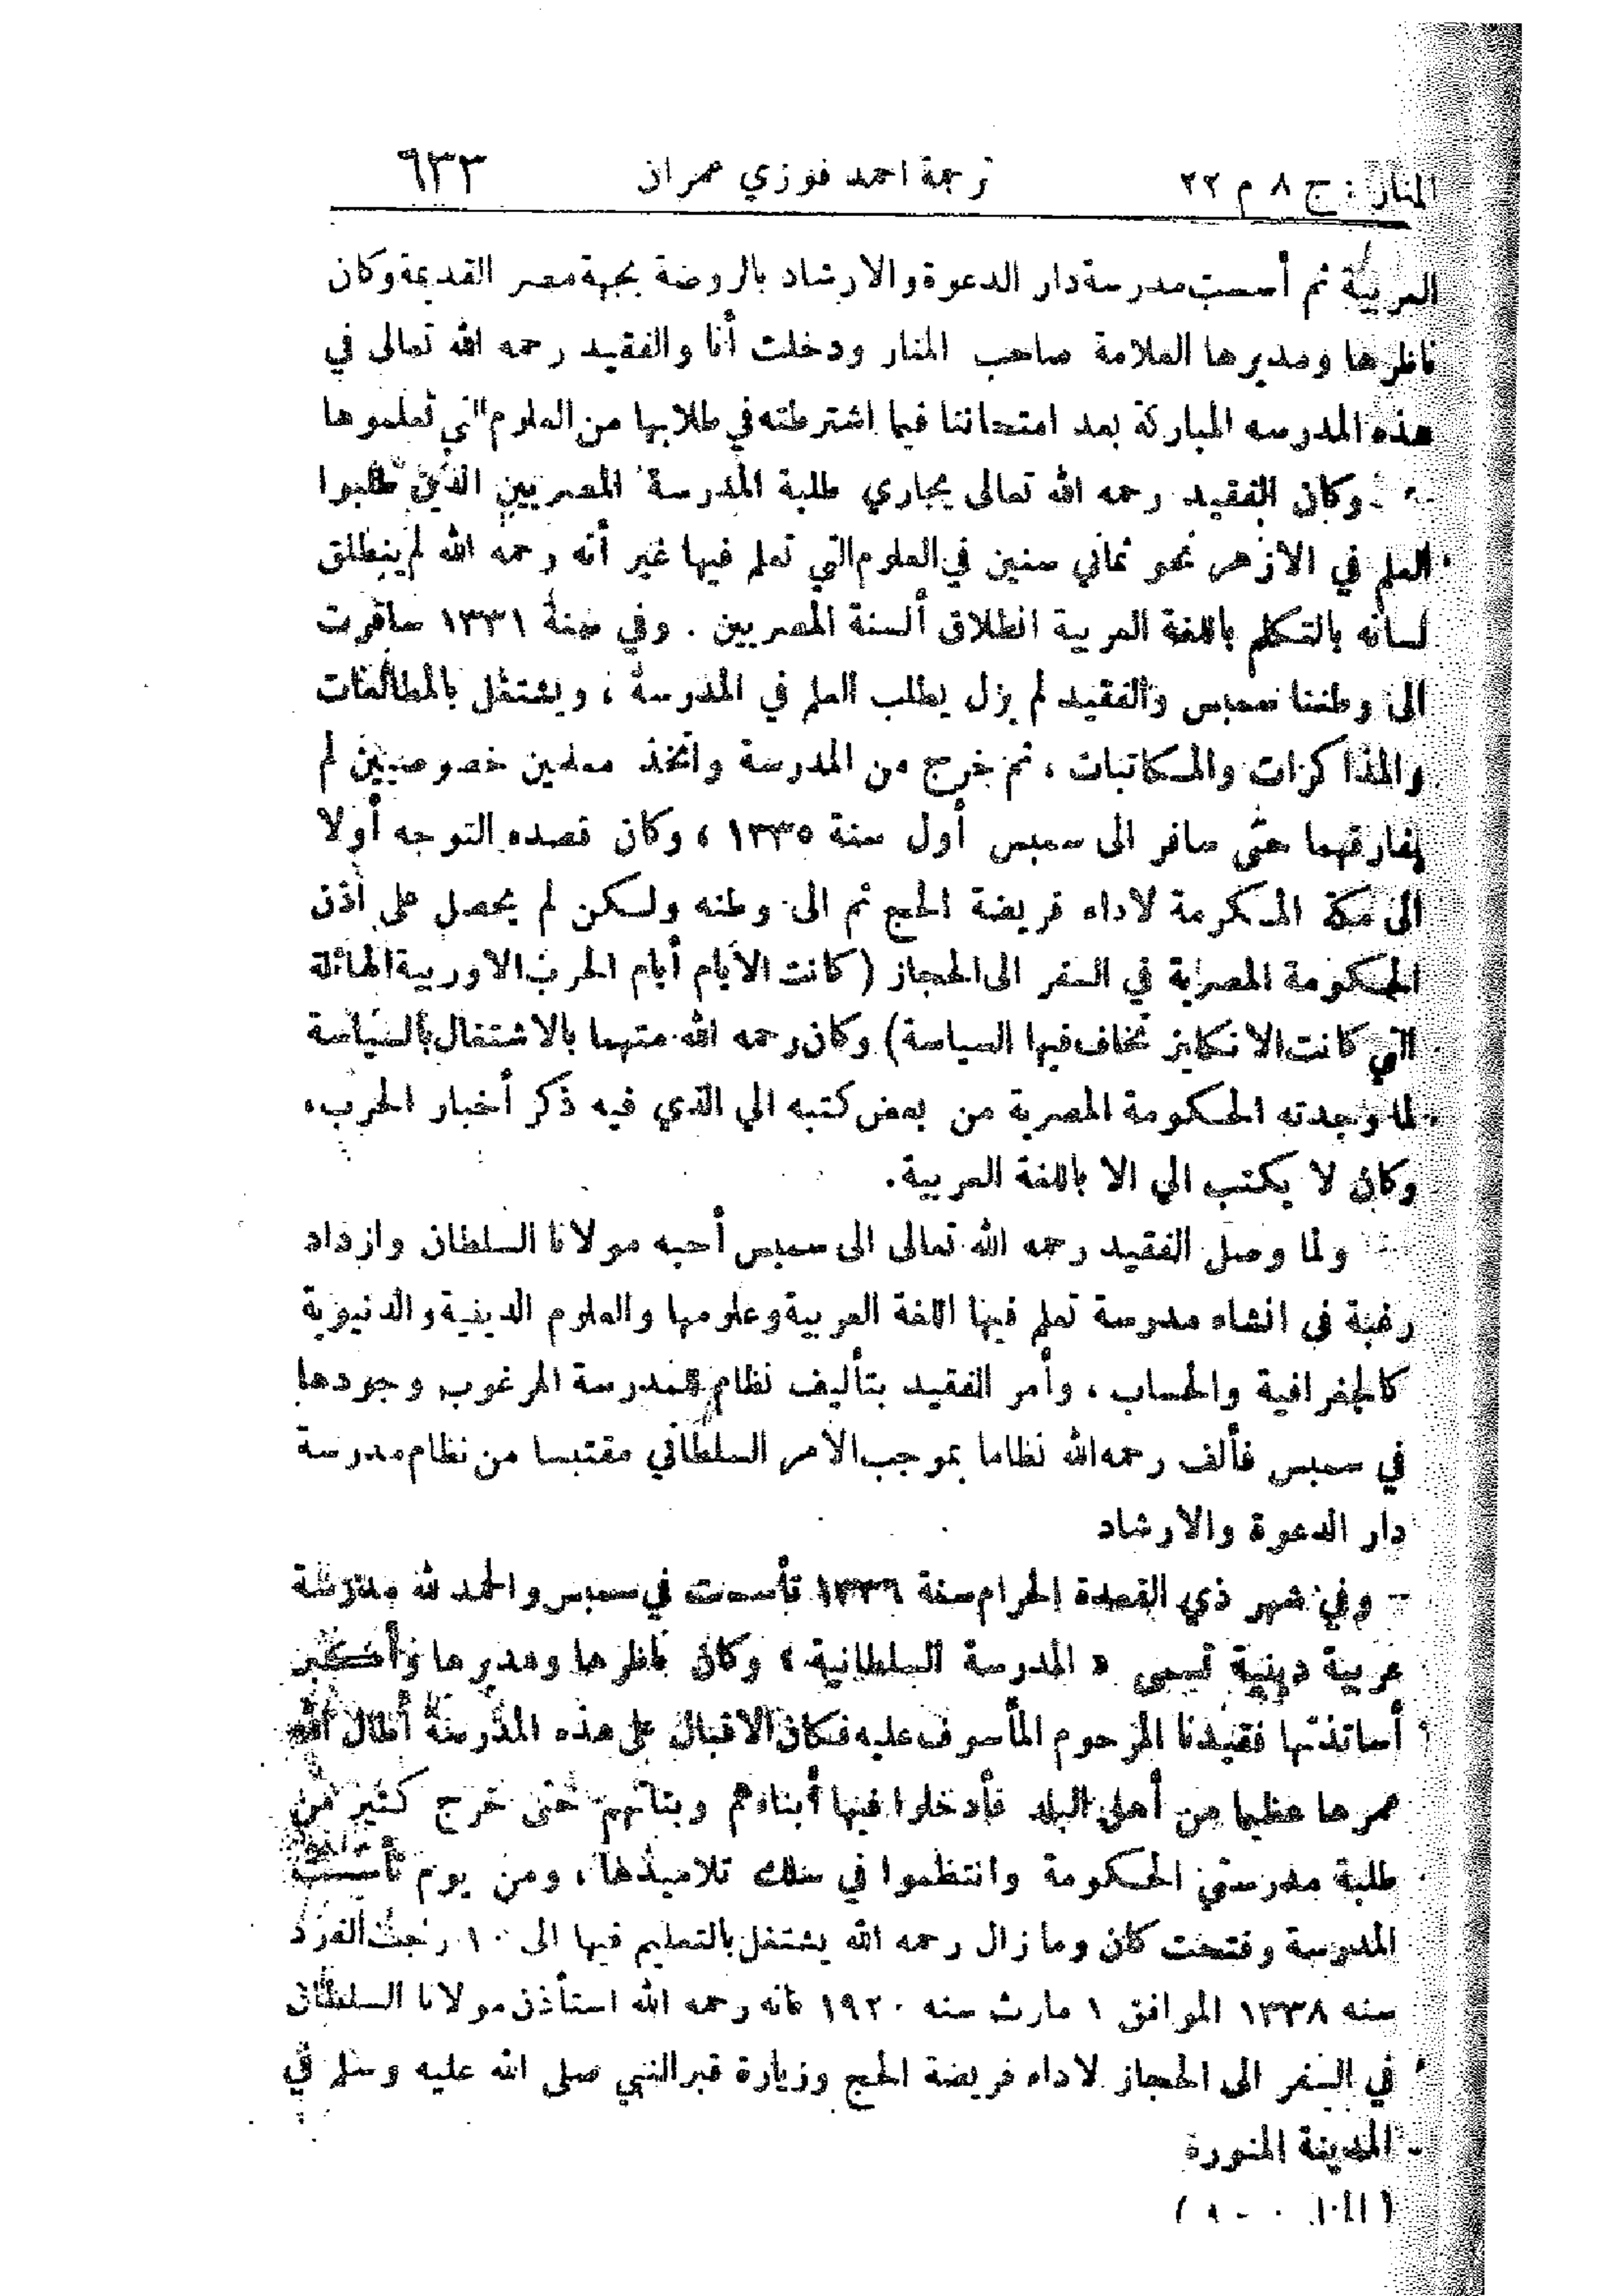 المنار : ج ٨ م ٢٢
ترجمة احمد فوزي عمران
٦٣٣
العربية ثم أسست مدرسة دار الدعوة والارشاد بالروضة بجهة مصر القديمة وكان
ناظرها ومديرها العلامة صاحب المنار ودخلت أنا والفقيد رحمه الله تعالى في
هذه المدرسه المباركة بعد امتحاننا فيما اشترطته في طلابها من العلوم التي تعلموها
وكان الفقيد رحمه الله تعالى يجاري طلبة المدرسة المصريين الذين طلبوا
العلم في الازهر نحو ثماني سنين في العلوم التي تعلم فيها غير أنه رحمه الله لم ينطلق
لسانه بالتكلم باللغة العربية انطلاق ألسنة المصريين . وفي سنة ١٣٣١ سافرت
الى وطننا سمبس والفقيد لم يزل يطلب العلم في المدرسة ، ويشتغل بالمطالعات
والمذاكرات والمكاتبات ، ثم خرج من المدرسة واتخذ معلمين خصوصيين لم
يفارقهما حتى سافر الى سمبس أول سنة ١٣٣٥ ، وكان قصده التوجه أولا
الى مكة المكرمة لاداء فريضة الحج ثم الى وطنه ولكن لم يحصل على اذن
الحكومة المصرية في السفر الى الحجاز ( كانت الأيام أيام الحرب الاوربية الهائلة
التي كانت الانكليز تخاف فيها السياسة ) وكان رحمه الله متهما بالاشتغال بالسياسة
لما وجدته الحكومة المصرية من بعض كتبه الي الذي فيه ذكر أخبار الحرب،
وكان لا يكتب الي الا باللغة العربية .
ولما وصل الفقيد رحمه الله تعالى الى سمبس أحبه مولانا السلطان وازداد
رغبة في انشاء مدرسة تعلم فيها اللغة العربية وعلومها والعلوم الدينية والدنيوية
كالجغرافية والحساب ، وأمر الفقيد بتأليف نظام للمدرسة المرغوب وجودها
في سمبس فألف رحمه الله نظاما بموجب الأمر السلطاني مقتبسا من نظام مدرسة
دار الدعوة والارشاد
وفي شهر ذي القعدة الحرام سنة ١٣٣٦ تأسست في سمبس والحمد لله مدرسة
عربية دينية تسمى « المدرسة السلطانية » وكان ناظرها ومديرها وأكبر
أساتذتها فقيدنا المرحوم المأسوف عليه فكان الاقبال على هذه المدرسة أطال الله
عمرها عظيما من أهل البلد فأدخلوا فيها أبناءهم وبناتهم حتى خرج كثير من
طلبة مدرستي الحكومة وانتظموا في سلك تلاميذها ، ومن يوم تأسست
المدرسة وفتحت كان وما زال رحمه الله يشتغل بالتعليم فيها الى ١٠ رجب الفرد
سنه ١٣٣٨ الموافق ١ مارث سنه ١٩٢٠ فانه رحمه الله استأذن مولانا السلطان
في السفر الى الحجاز لاداء فريضة الحج وزيارة قبر النبي صلى الله عليه وسلم في
المدينة المنورة